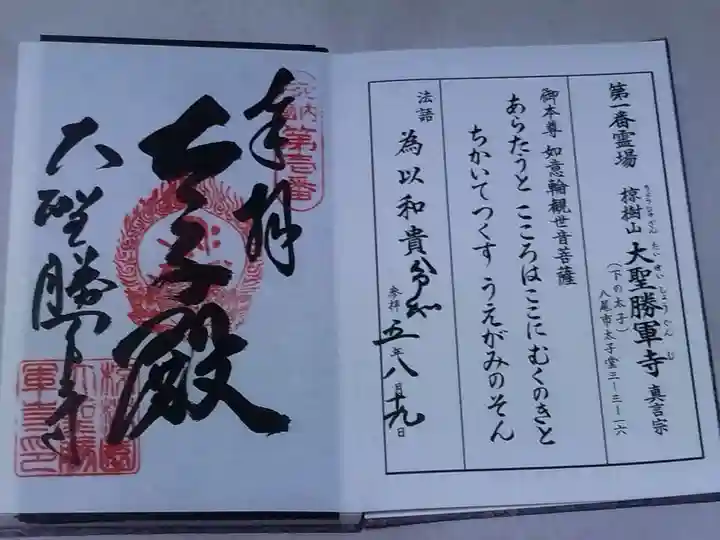 第一番霊場
椋樹山 大聖勝軍寺 真言宗
りょうじゅさん たいせいしょうぐんじ
(下の太子)
八尾市太子堂三ー三ー一六
御本尊 如意輪観世音菩薩
あらたうと こころはここに むくのきと
ちかいてつくす うえがみのそん
法語 為以和貴
参拝 令和五年八月十九日
奉拝
河内 第壱番
太子殿
大聖勝軍寺